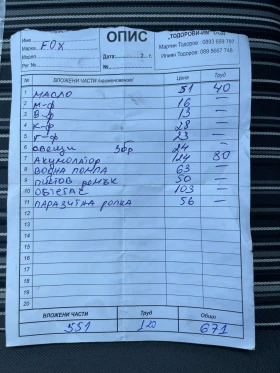 ОПИС
"ТОДОРОВИ-ИМ" ООД
Име
Марка FOX
Мартин Тодоров - 0893 669 797
Дата: 2 г.
Илиян Тодоров: 089 5667 746
Рег №
№ ВЛОЖЕНИ ЧАСТИ /наименование/ Цена Труд
1 МАСЛО 51 40
2 М-Ф 16 —
3 В-Ф 13 —
4 К-Ф 28 —
5 Г-Ф 23 —
6 СВЕЩИ 3бр 24 —
7 АКУМОЛАТОР 124 80
8 ВОДНА ПОМПА 63 —
9 ПИСТОВ РЕМЪК 50 —
10 ОБТЕГАЧ 103 —
11 ПАРАЗИТНА РОЛКА 56 —
12
13
14
15
16
17
18
19
20
ВЛОЖЕНИ ЧАСТИ Труд Общо
551 120 671